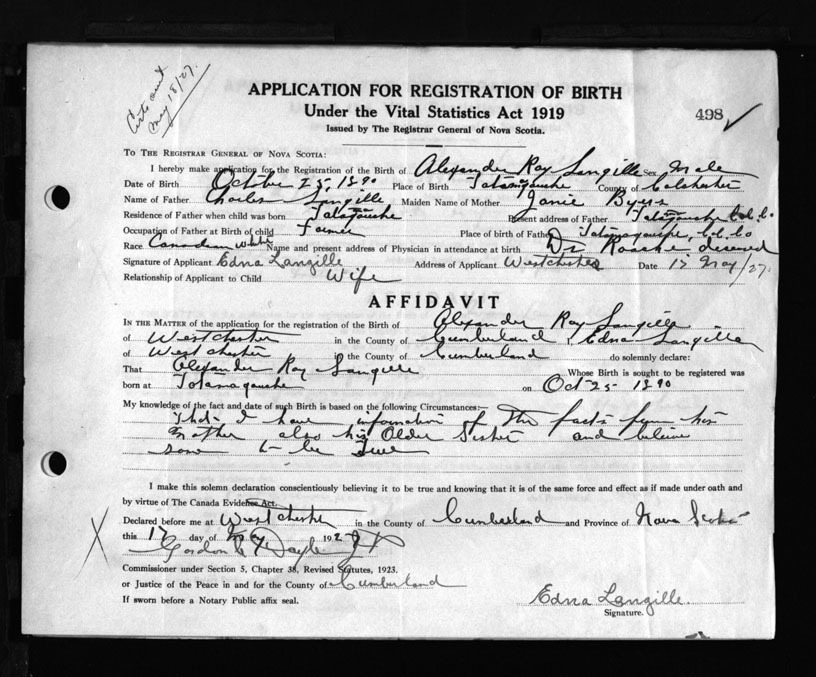 Certs out
May 18/27.
APPLICATION FOR REGISTRATION OF BIRTH
Under the Vital Statistics Act 1919
Issued by The Registrar General of Nova Scotia.
498 ✓
TO THE REGISTRAR GENERAL OF NOVA SCOTIA:
I hereby make application for the Registration of the Birth of Alexander Roy Langille Sex Male
Date of Birth October 25, 1890 Place of Birth Tatamagouche County of Colchester
Name of Father Charles Langille Maiden Name of Mother Janie Byers
Residence of Father when child was born Tatamagouche Present address of Father Tatamagouche Col. Co
Occupation of Father at Birth of child Farmer Place of birth of Father Tatamagouche, Col. Co
Race Canadian White Name and present address of Physician in attendance at birth Dr Roache deceased
Signature of Applicant Edna Langille Address of Applicant Westchester Date 17 May/27.
Relationship of Applicant to Child Wife
AFFIDAVIT
IN THE MATTER of the application for the registration of the Birth of Alexander Roy Langille
of Westchester in the County of Cumberland, Edna Langille
of Westchester in the County of Cumberland do solemnly declare:
That Alexander Roy Langille Whose Birth is sought to be registered was
born at Tatamagouche on Oct 25 1890
My knowledge of the fact and date of such Birth is based on the following Circumstances:—
That I have information of the facts from his
Mother also his Older Sister and believe
same to be True
I make this solemn declaration conscientiously believing it to be true and knowing that it is of the same force and effect as if made under oath and
by virtue of The Canada Evidence Act.
Declared before me at Westchester in the County of Cumberland and Province of Nova Scotia
this 17 day of May 1927
Gordon J P
Commissioner under Section 5, Chapter 38, Revised Statutes, 1923.
or Justice of the Peace in and for the County of Cumberland
If sworn before a Notary Public affix seal.
Edna Langille.
Signature.